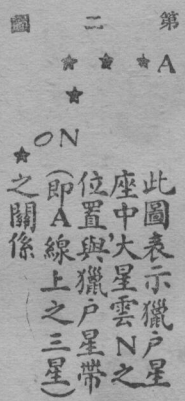 第二圖
A
N
此圖表示獵戶星
座中大星雲N之
位置與獵戶星帶
(即A線上之三星)
之關係